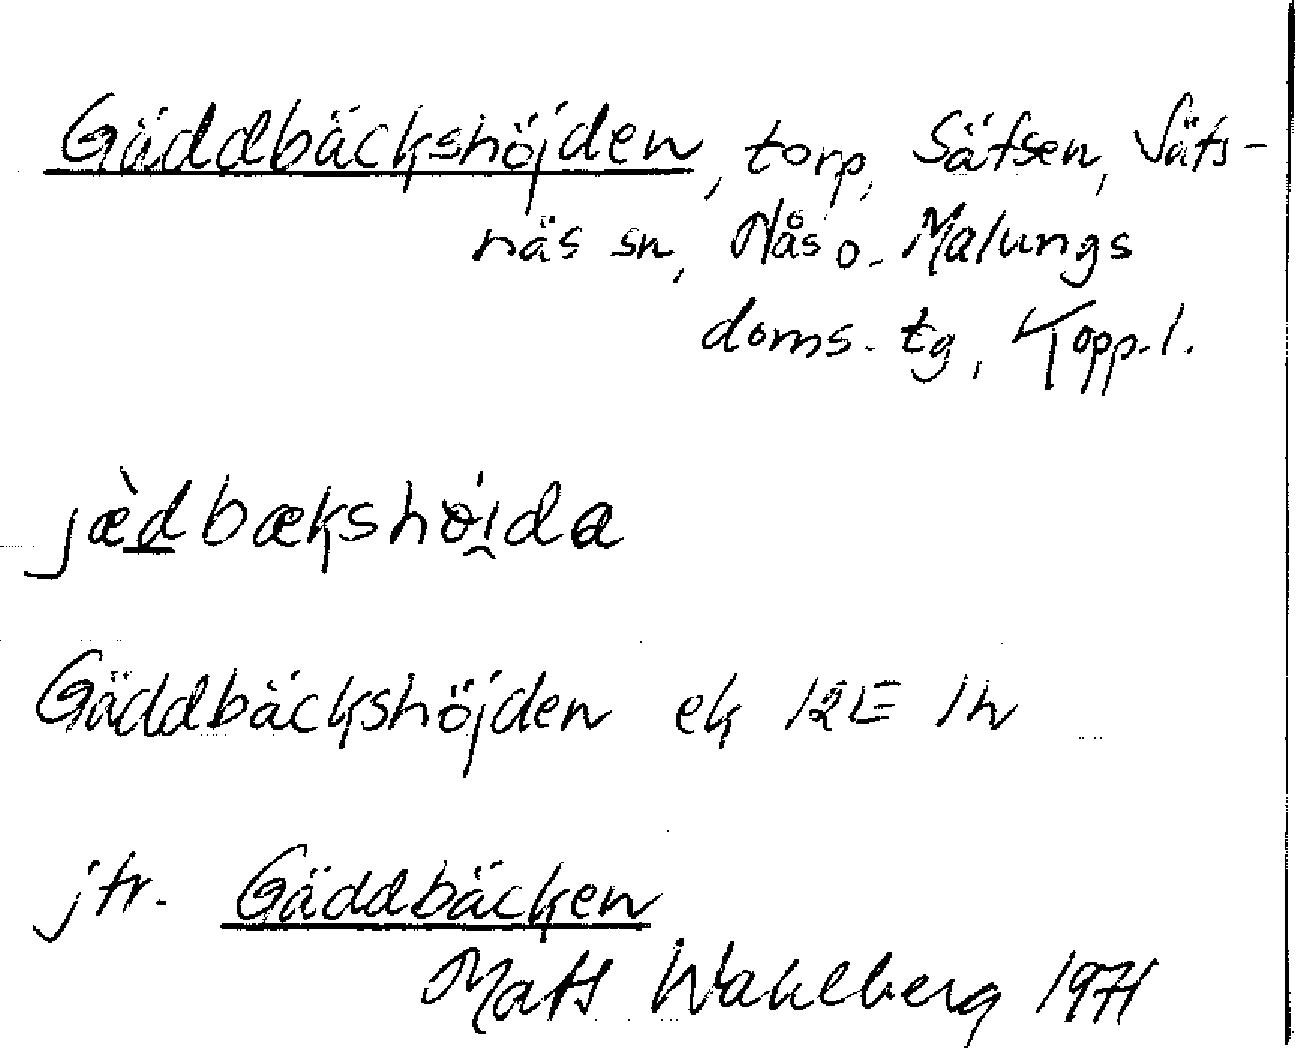 Gäddbäckshöjden, torp, Säfsen, Säfs-
näs sn, Nås o. Malungs
doms. tg, Kopp. l.
jæ̀dbækshö́i̯da
Gäddbäckshöjden ek 12E 1h
jfr. Gäddbäcken
Mats Wahlberg 1971